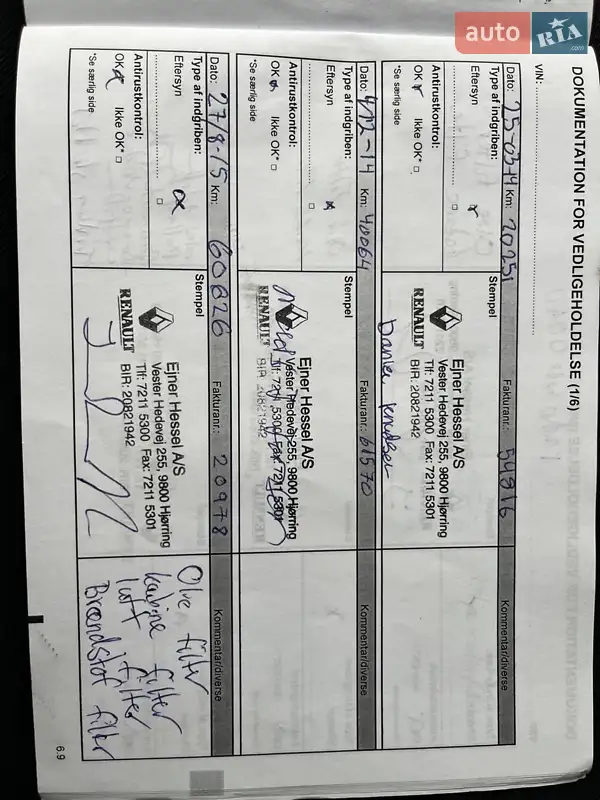 auto RIA .com
DOKUMENTATION FOR VEDLIGEHOLDELSE (1/6)
VIN:
Dato: 25-03-14 Km: 20251 Fakturanr.: 54816 Kommentar/diverse
Type af indgriben: Stempel
Eftersyn
Antirustkontrol:
OK Ikke OK*
*Se særlig side
Ejner Hessel A/S
Vester Hedevej 255, 9800 Hjørring
Tlf: 7211 5300 Fax: 7211 5301
BIR: 20821942
RENAULT
Dato: 4/12-14 Km: 40064 Fakturanr.: 61570 Kommentar/diverse
Type af indgriben: Stempel
Eftersyn
Antirustkontrol:
OK Ikke OK*
*Se særlig side
Ejner Hessel A/S
Vester Hedevej 255, 9800 Hjørring
Tlf: 7211 5300 Fax: 7211 5301
BIR 20821942
RENAULT
Dato: 27/8-15 Km: 60826 Fakturanr.: 20978 Kommentar/diverse
Type af indgriben: Stempel
Eftersyn
Antirustkontrol:
OK Ikke OK*
*Se særlig side
Ejner Hessel A/S
Vester Hedevej 255, 9800 Hjørring
Tlf: 7211 5300 Fax: 7211 5301
BIR: 20821942
RENAULT
Olie filter
kabine filter
luft filter
Brændstof filter
6.9